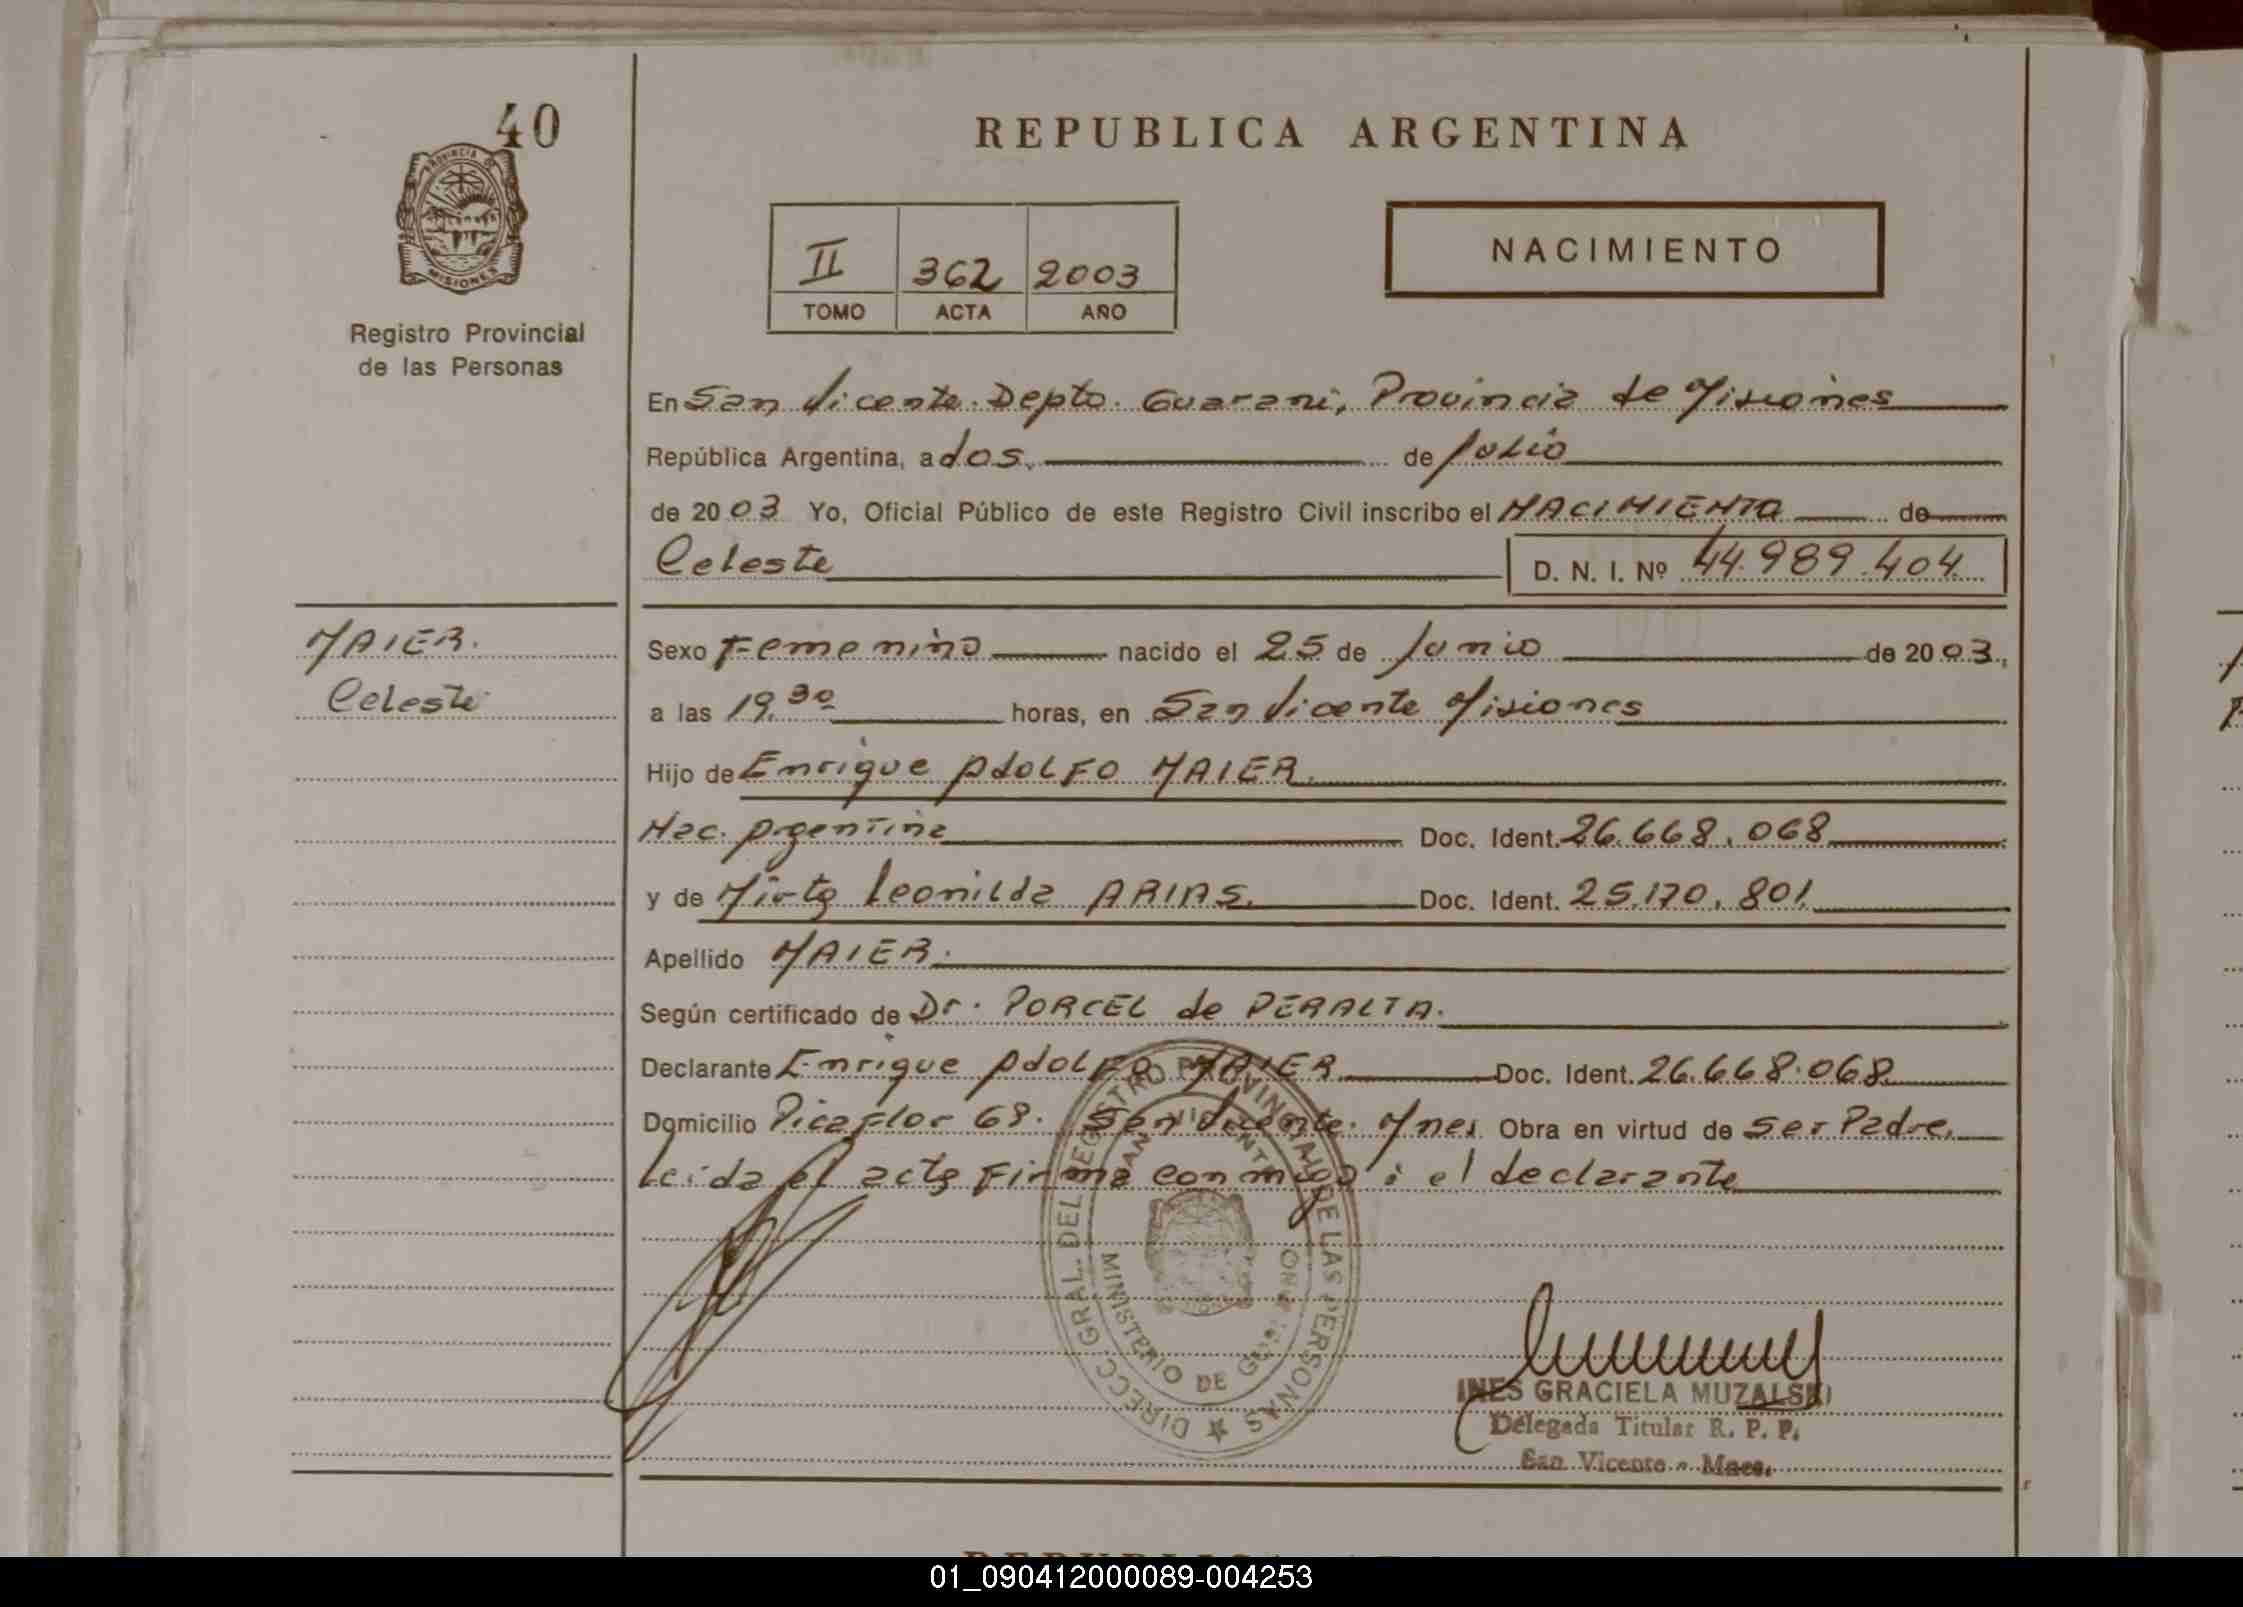 40
PROVINCIA DE
MISIONES
Registro Provincial
de las Personas
REPUBLICA ARGENTINA
II 362 2003
TOMO ACTA AÑO
NACIMIENTO
En San Vicente. Depto. Guarani, Provincia de Misiones
República Argentina, a dos. de Julio
de 2003 Yo, Oficial Público de este Registro Civil inscribo el NACIMIENTO de
Celeste D. N. I. Nº 44.989.404
MAIER.
Celeste
Sexo Femenino nacido el 25 de Junio de 2003,
a las 19.30 horas, en San Vicente Misiones
Hijo de Enrique Adolfo MAIER.
Nac. Argentina Doc. Ident. 26.668.068
y de Mirta Leonilda ARIAS. Doc. Ident. 25.170.801
Apellido MAIER.
Según certificado de Dr. PORCEL de PERALTA.
Declarante Enrique Adolfo MAIER Doc. Ident. 26.668.068
Domicilio Picaflor 68. San Vicente. Mnes Obra en virtud de ser Padre,
Leida el acta Firma conmigo: el declarante
DIRECC. GRAL. DEL REGISTRO PROVINCIAL DE LAS PERSONAS
SAN VICENTE
MINISTERIO DE GOBIERNO
INES GRACIELA MUZALSKI
Delegada Titular R. P. P.
San Vicente - Mnes.
01_090412000089-004253